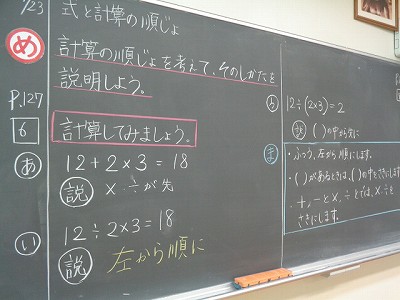 1/23
式と計算の順じょ
め
計算の順じょを考えて、そのしかたを
説明しよう。
P.127
6
計算してみましょう。
あ
12+2×3=18
説 ×、÷が先
い
12÷2×3=18
説 左から順に
う
12÷(2×3)=2
説 ( )の中から先に
ま
・ふつう、左から順にします。
・( )があるときは、( )の中をさきにします。
・+、-と×、÷とでは、×、÷を
さきにします。